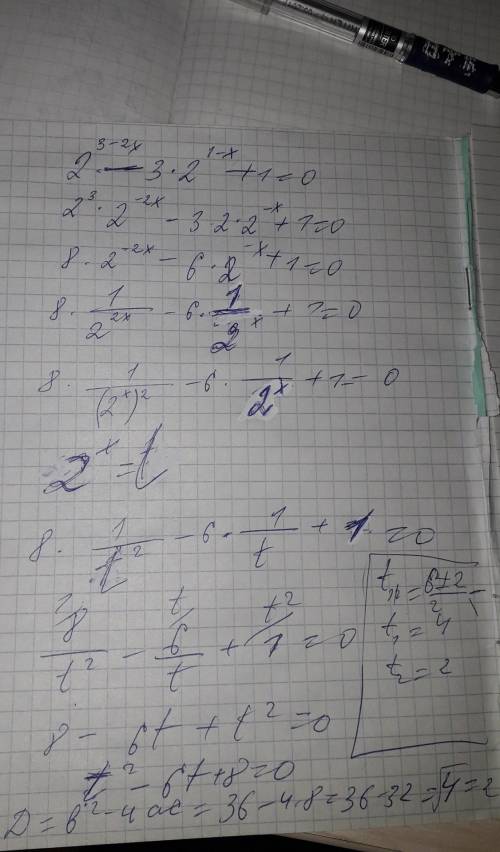 2^{3-2x} - 3·2^{1-x} + 1 = 0
2^3 · 2^{-2x} - 3·2·2^{-x} + 1 = 0
8 · 2^{-2x} - 6 · 2^{-x} + 1 = 0
8 · 1/2^{2x} - 6 · 1/2^x + 1 = 0
8 · 1/(2^x)^2 - 6 · 1/2^x + 1 = 0
2^x = t
8 · 1/t^2 - 6 · 1/t + 1 = 0
8/t^2 - 6/t + 1 = 0
8 - 6t + t^2 = 0
t^2 - 6t + 8 = 0
D = b^2 - 4ac = 36 - 4·8 = 36 - 32 = √4 = 2
t = 6±2/2 =
t₁ = 4
t₂ = 2